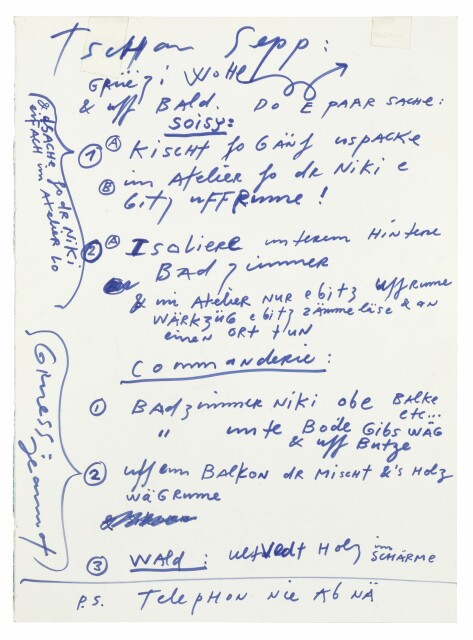 Tschau Sepp:
Grüezi Wohl
& uff Bald. Do e paar sache:
Soisy:
① Ⓐ Kischt fo Gänf uspacke
Ⓑ im Atelier fo dr Niki e
bitz uffRume!
② Ⓐ Isoliere unterem Hintere
Badzimmer
& im Atelier nur e bitz uffRume
Wärkzüg e bitz zämmeläse & an
einen Ort tun
& d'Sache fo dr Niki
eifach im Atelier lo
Commanderie:
① Badzimmer Niki obe Balke
etc...
" unte Bode Gibs wäg
& uff Butze
② uff em Balkon dr Mischt & 's Holz
wägrume
③ Wald: Holz im
Schärme
Gruess: Jeannot
P.S. Telephon nie Ab nä